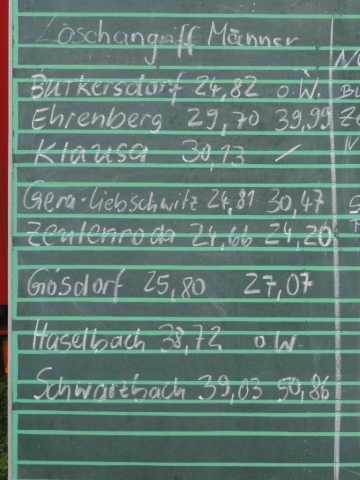 Löschangriff Männer
Burkersdorf 24,82 o.W.
Ehrenberg 29,70 39,99
Klausa 30,13 /
Gera-Liebschwitz 24,81 30,47
Zeulenroda 24,66 24,20
Gösdorf 25,80 27,07
Haselbach 38,72 o.W.
Schwarzbach 39,03 50,86